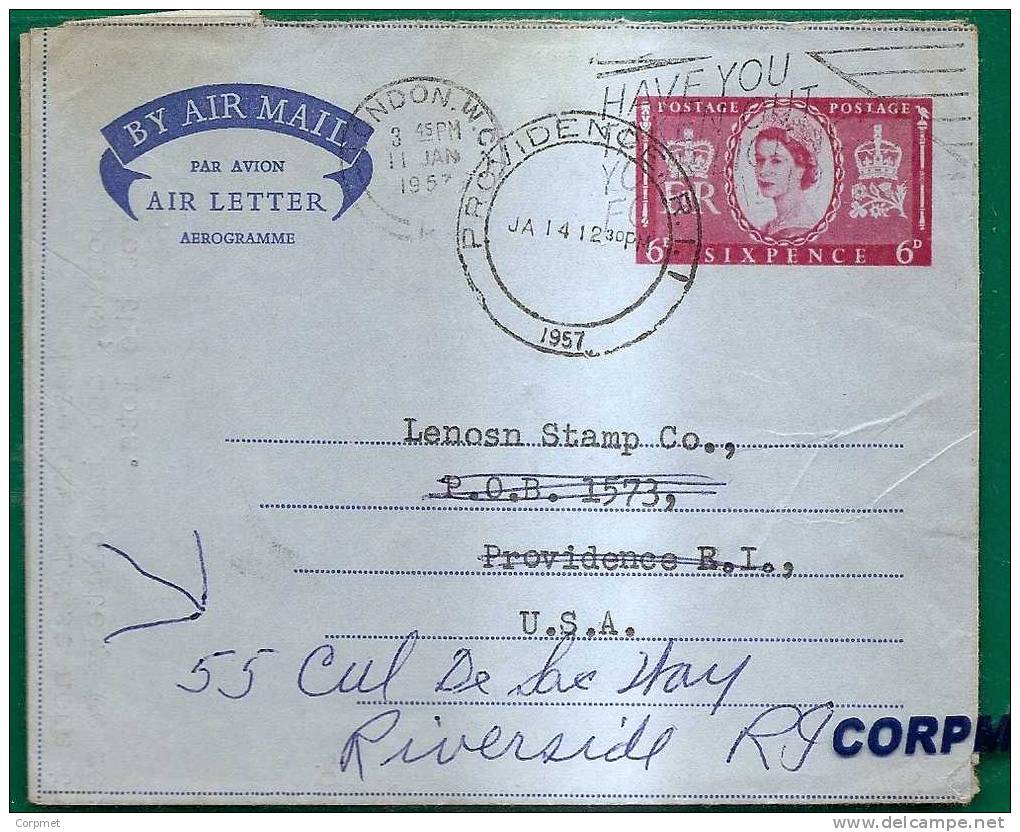 BY AIR MAIL
PAR AVION
AIR LETTER
AEROGRAMME
LONDON. W.C.
3 45PM
11 JAN
1957
PROVIDENCE, R.I. 1
JA 14 12 30PM
1957
HAVE YOU
POSTAGE POSTAGE
E R
6D SIXPENCE 6D
Lenosn Stamp Co.,
P.O.B. 1573,
Providence R.I.,
U.S.A.
55 Cul De Sac Way
Riverside RI
CORPM
Corpmet
delcampe.net